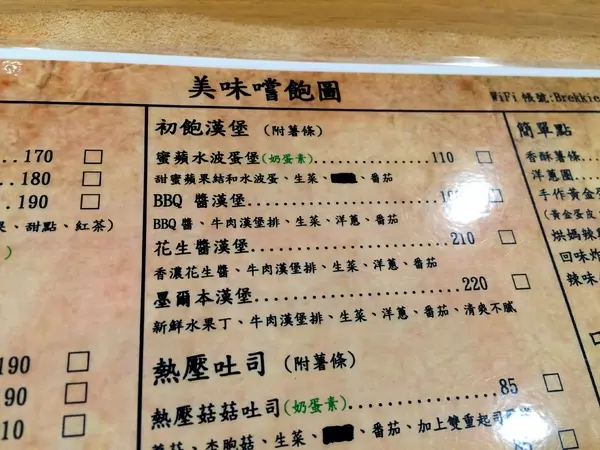 美味嚐飽圖
WiFi 帳號:Brekkie
...170 □
...180 □
...190 □
、甜點、紅茶)
190 □
90 □
10 □
初飽漢堡 (附薯條)
蜜蘋水波蛋堡(奶蛋素)...............110 □
甜蜜蘋果結和水波蛋、生菜、、番茄
BBQ 醬漢堡
BBQ 醬、牛肉漢堡排、生菜、洋蔥、番茄
花生醬漢堡.........................210 □
香濃花生醬、牛肉漢堡排、生菜、洋蔥、番茄
墨爾本漢堡.........................220 □
新鮮水果丁、牛肉漢堡排、生菜、洋蔥、番茄、清爽不膩
熱壓吐司 (附薯條)
熱壓菇菇吐司(奶蛋素)...............85 □
杏鮑菇、生菜、、番茄、加上雙重起司
簡單點
香酥薯條
洋蔥圈
手作黃金蛋
(黃金蛋皮
烘媽辣
回味炸
辣味